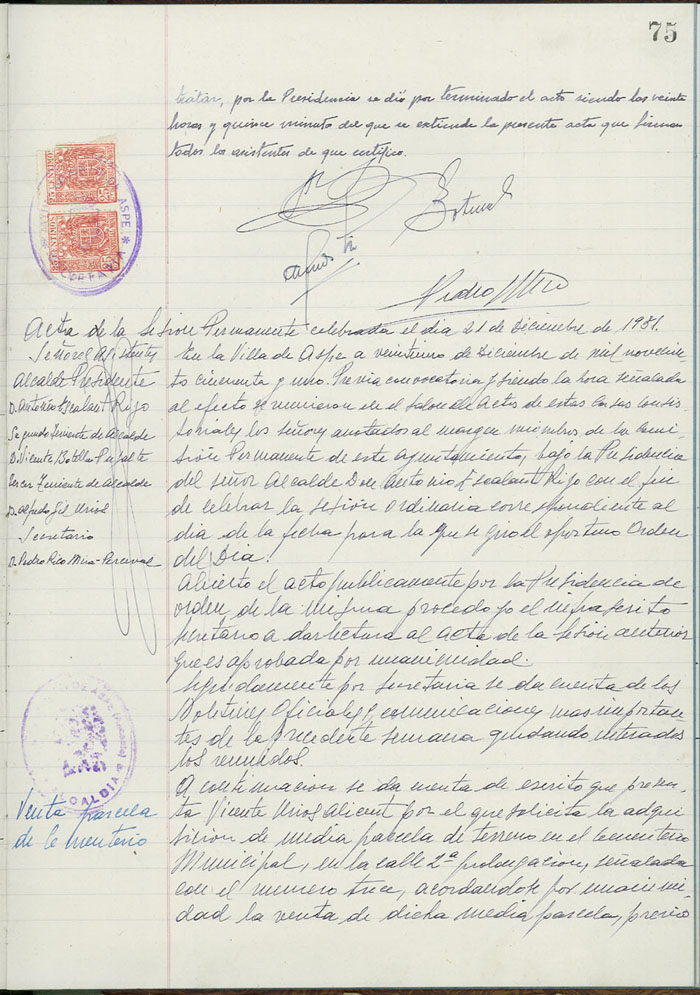 75
tratar, por la Presidencia se dió por terminado el acto siendo las veinte
horas y quince minuto del que se extiende la presente acta que firman
todos los asistentes de que certifico.
Botella
Pedro Rico
Acta de la Sesión Permanente celebrada el dia 21 de Diciembre de 1951.
Señores Asistentes
Alcalde Presidente
D. Antonio Escalant Rijo
Segundo Teniente de Alcalde
D. Vicente Botella
Tercer Teniente de Alcalde
D. Alfredo Gil Urios
Secretario
D. Pedro Rico Mira-Perceval
En la Villa de Aspe a veintiuno de Diciembre de mil novecien
to cincuenta y uno. Previa convocatoria y siendo la hora señalada
al efecto se reunieron en el salon de Actos de estas Casas Consis
toriales los señores anotados al margen miembros de la Comi
sión Permanente de este Ayuntamiento, bajo la Presidencia
del señor Alcalde Don Antonio Escalant Rijo con el fin
de celebrar la sesión ordinaria correspondiente al
dia de la fecha para la que se giró el oportuno Orden
del Dia.
Abierto el acto publicamente por la Presidencia de
orden de la misma procedo yo el infrascrito
secretario a dar lectura al acta de la sesión anterior
que es aprobada por unanimidad.
Seguidamente por Secretaria se da cuenta de los
Boletines Oficiales y comunicaciones mas importan
tes de la precedente semana quedando enterados
los reunidos.
ALCALDIA
Venta parcela
de Cementerio
A continuacion se da cuenta de escrito que presen
ta Vicente Urios Alicent por el que solicita la adqui
sicion de media parcela de terreno en el Cementerio
Municipal, en la calle 2ª prolongacion, señalada
con el numero trece, acordandose por unanimi
dad la venta de dicha media parcela, previo